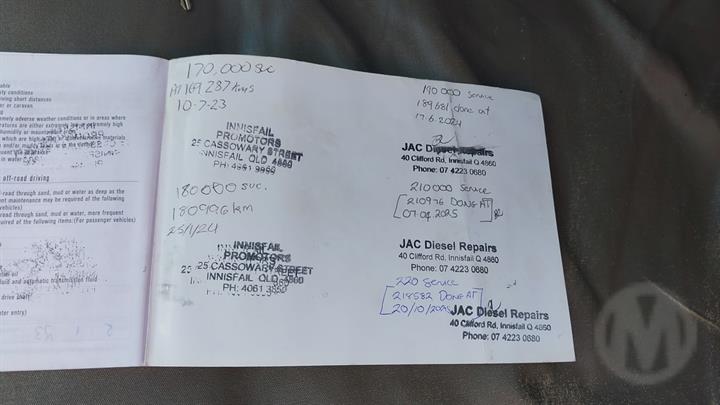 ty conditions
iving short distances
er or caravan
emely adverse weather conditions or in areas where
ratures are either extremely high
humidity or
materials
in water
off-road driving
-road through sand, mud or water as deep as the
ent maintenance may be required of the following
vehicles)
road through sand, mud or water, more frequent
quired of the following items: (For passenger vehicles)
oil
uid and automatic transmission fluid
drive shaft
ter entry)
170,000 svc
AT 169 287 kms
10-7-23
INNISFAIL
PROMOTORS
25 CASSOWARY STREET
INNISFAIL QLD 4860
PH: 4061 3950
180000 svc.
180996 km
25/1/24
INNISFAIL
PROMOTORS
25 CASSOWARY STREET
INNISFAIL QLD 4860
PH: 4061 3950
190 000 service
189681 done at
17.6.2024
JAC Diesel Repairs
40 Clifford Rd, Innisfail Q 4860
Phone: 07 4223 0680
210000 Service
210976 DONE AT
07.04.2025
JAC Diesel Repairs
40 Clifford Rd, Innisfail Q 4860
Phone: 07 4223 0680
220 Service
218582 DONE AT
20/10/2025
JAC Diesel Repairs
40 Clifford Rd, Innisfail Q 4860
Phone: 07 4223 0680
M